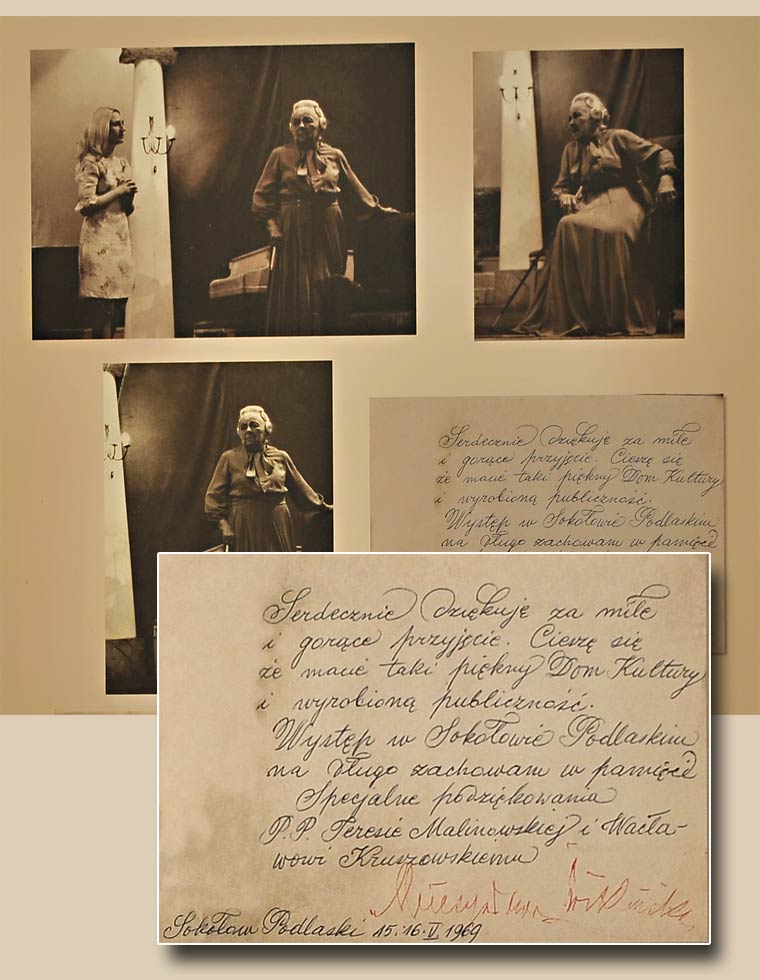 Serdecznie dziękuję za miłe
i gorące przyjęcie. Cieszę się
że macie taki piękny Dom Kultury
i wyrobioną publiczność.
Występ w Sokołowie Podlaskim
na długo zachowam w pamięci
Serdecznie dziękuję za miłe
i gorące przyjęcie. Cieszę się
że macie taki piękny Dom Kultury
i wyrobioną publiczność.
Występ w Sokołowie Podlaskim
na długo zachowam w pamięci
Specjalne podziękowania
P.P. Teresie Malinowskiej i Wacła-
wowi Kruszewskiemu
Mieczysława Ćwiklińska
Sokołow Podlaski 15.16.II 1969